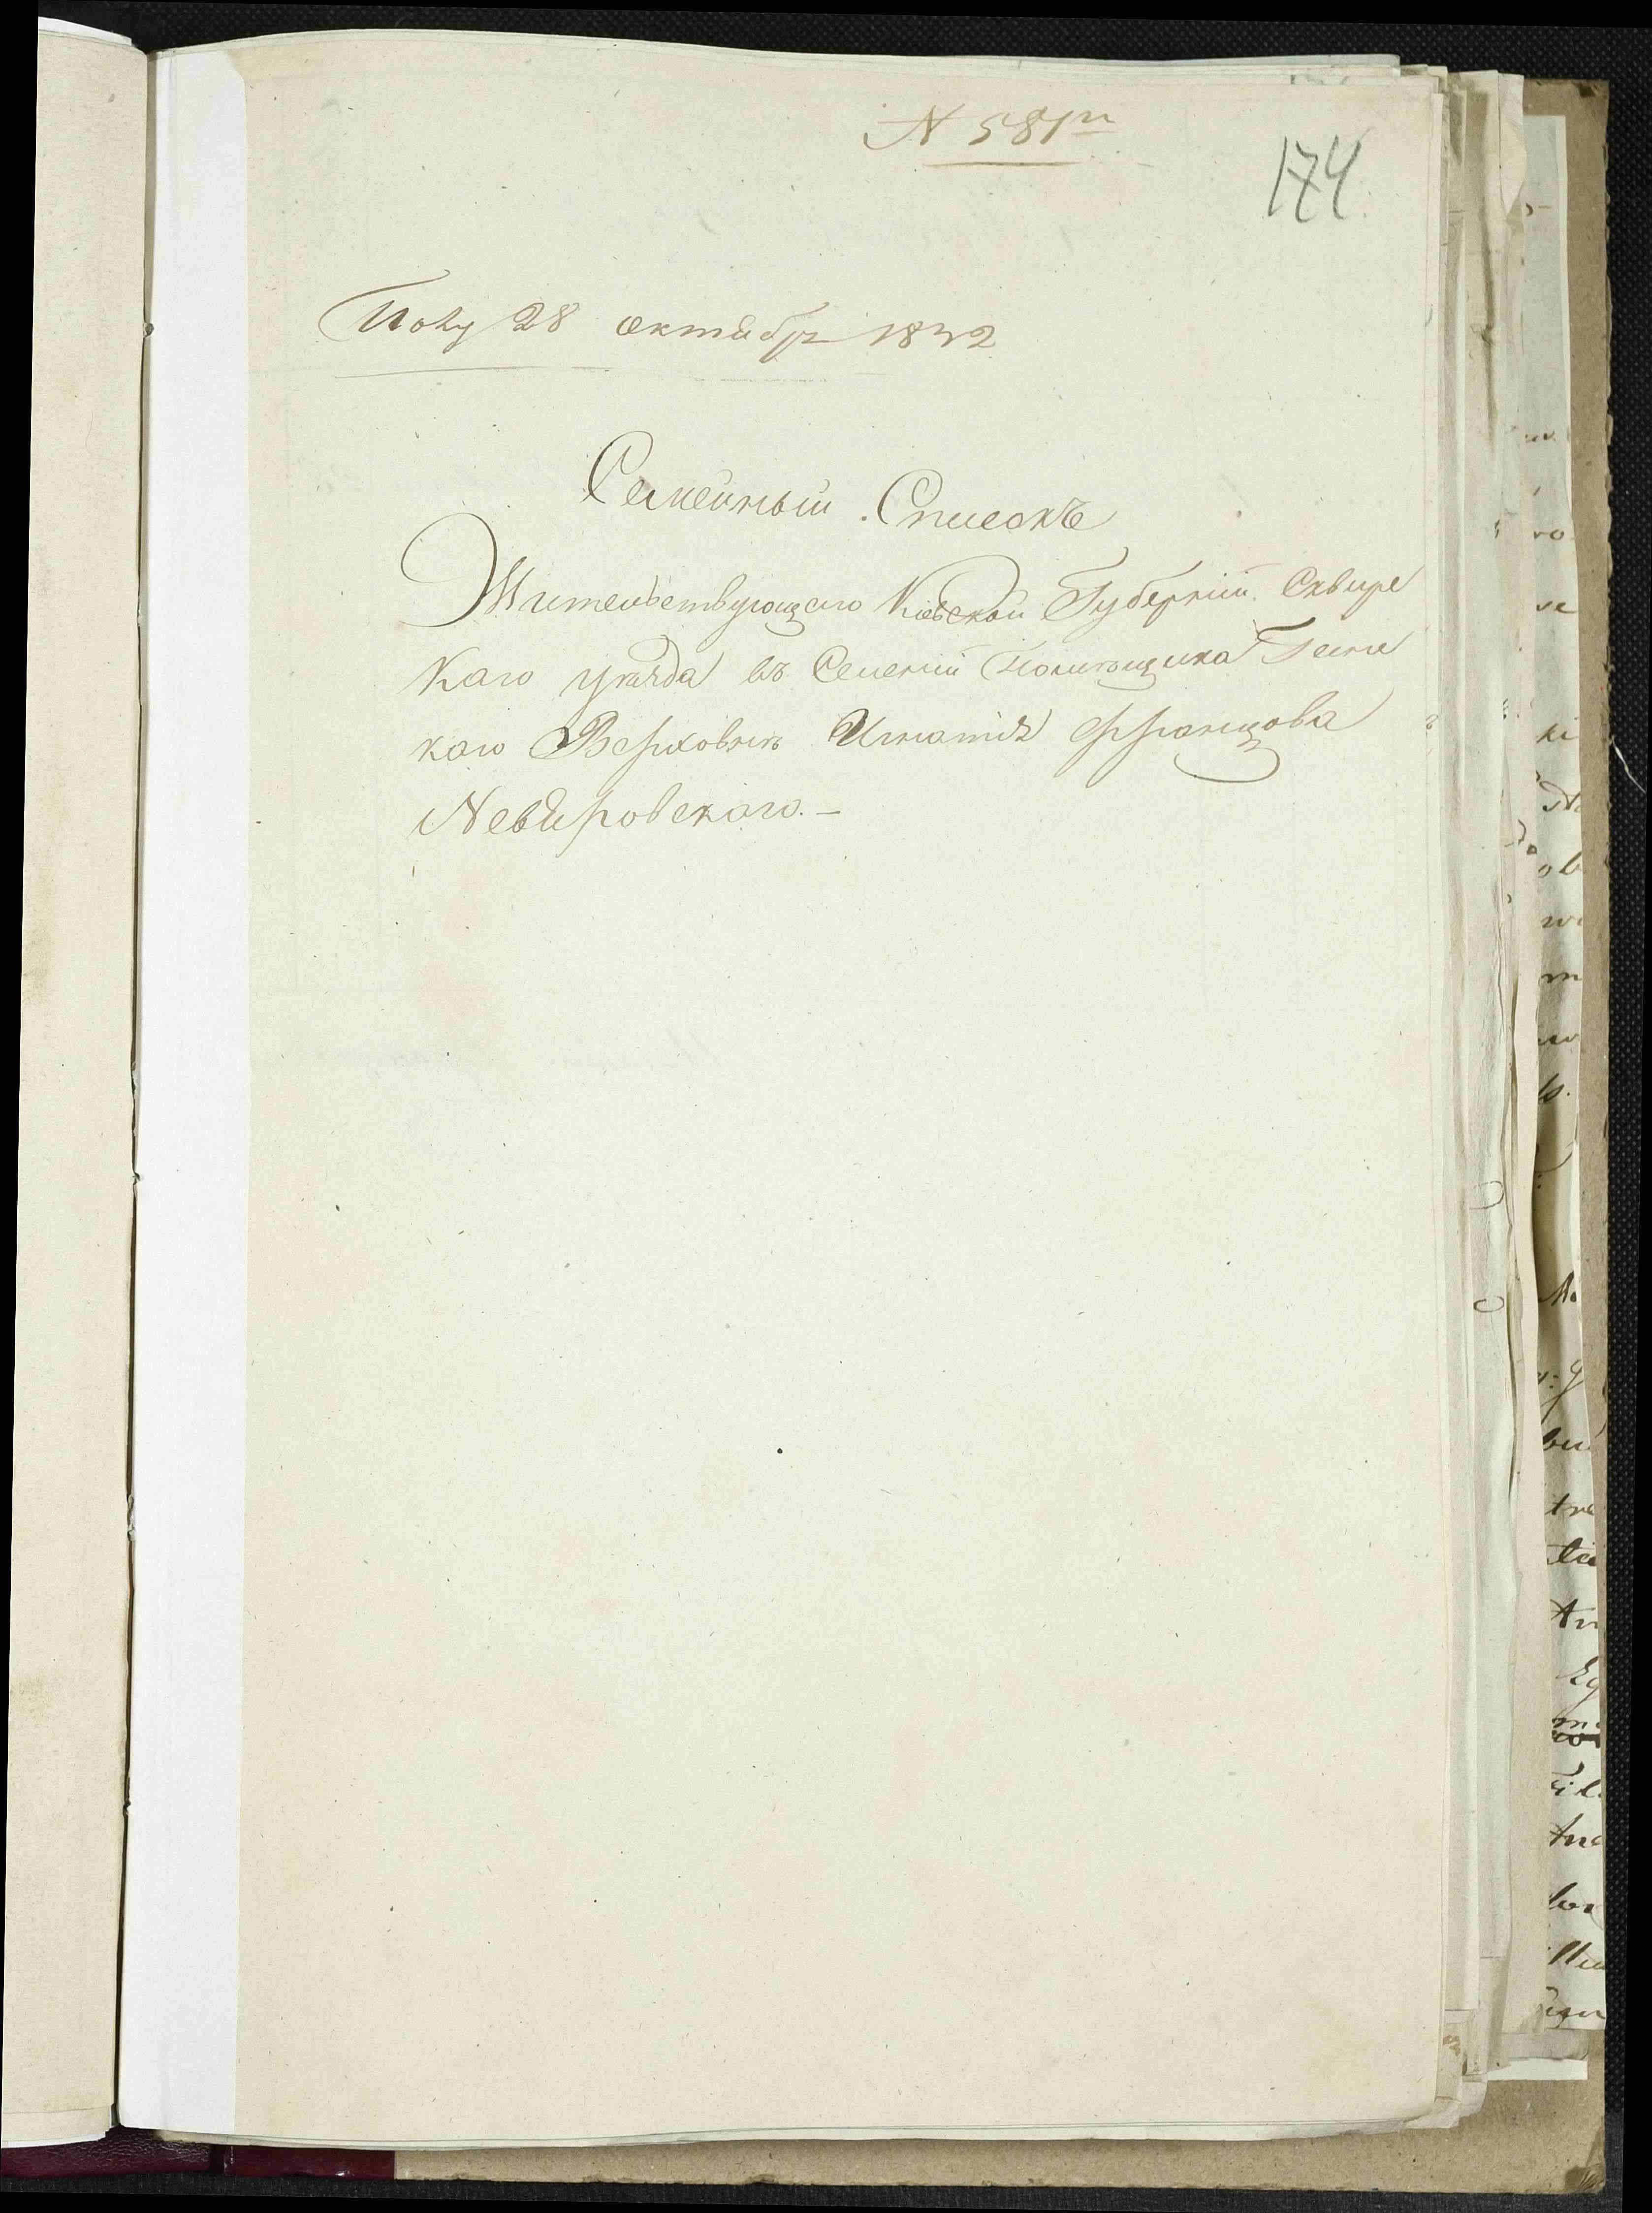 N 581
174
Полу 28 октября 1832
Семейный Списокъ
Жительствующаго Кіевской Губерніи Сквирс
каго уѣзда въ Селеніи Помѣщика Ганс
каго Верховнѣ Игнатія Францова
Невѣровскаго. —